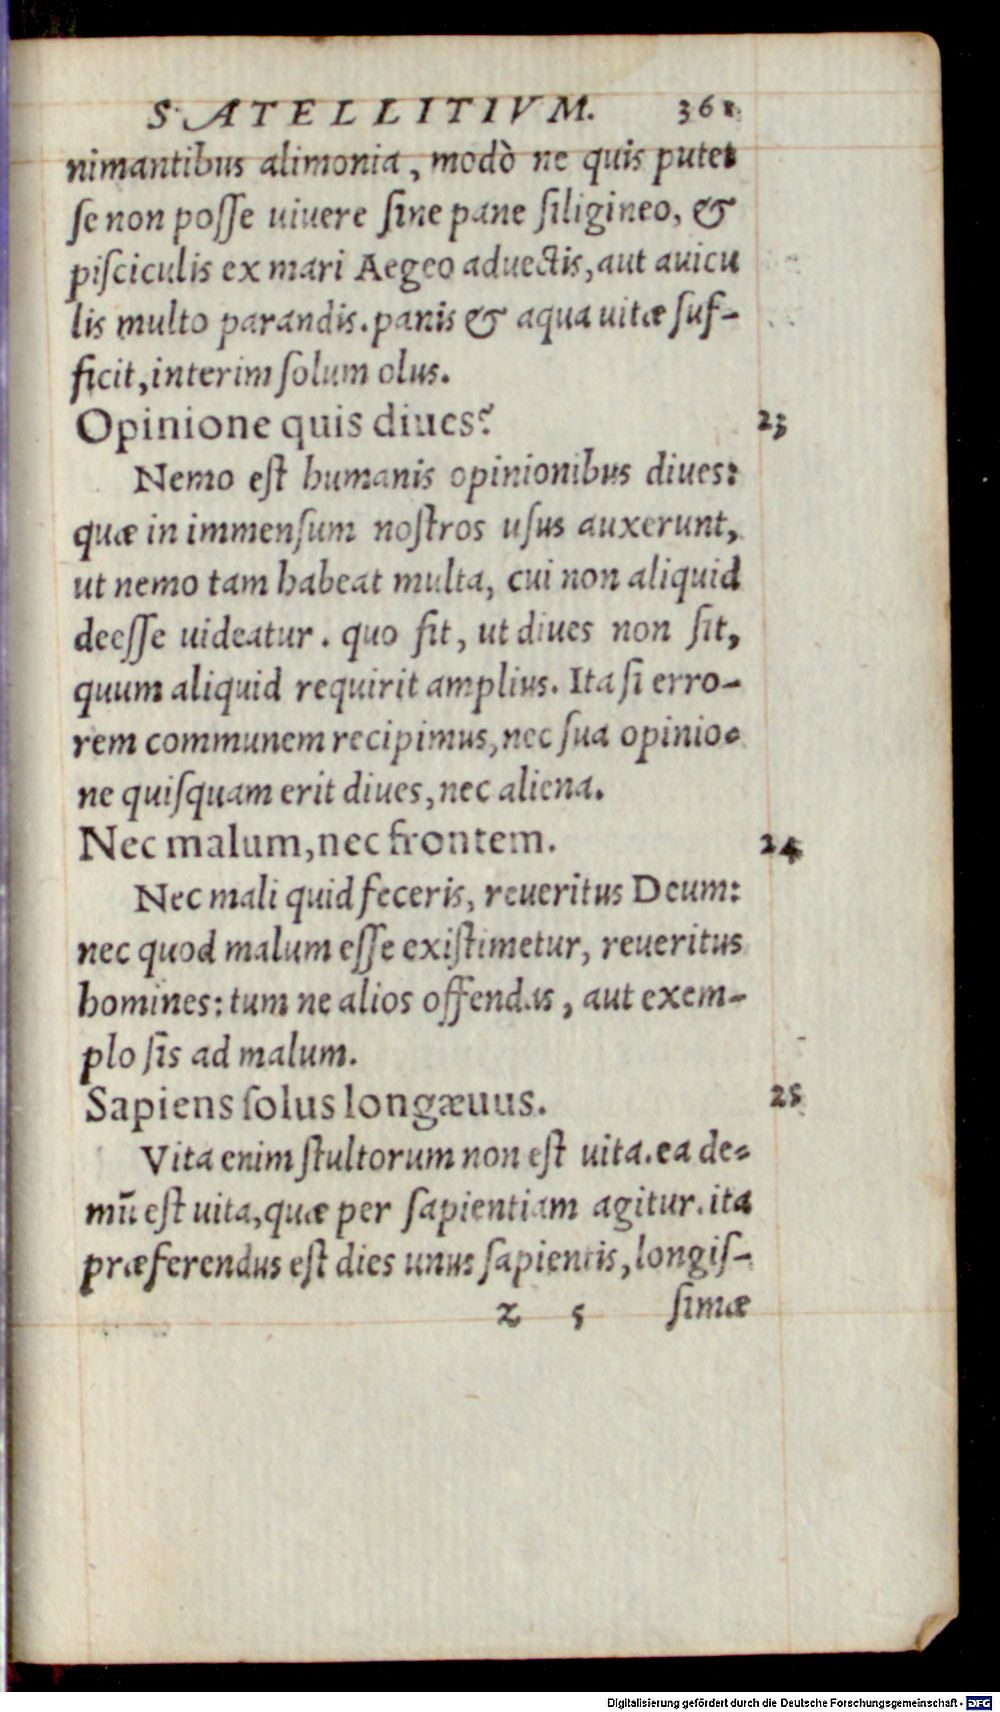 SATELLITIVM. 361
nimantibus alimonia, modò ne quis putet
ſe non poſſe uiuere ſine pane ſiligineo, &
piſciculis ex mari Aegeo aduectis, aut auicu
lis multo parandis. panis & aqua uitæ ſuf-
ficit, interim ſolum olus.
Opinione quis diues? 23
Nemo eſt humanis opinionibus diues:
quæ in immenſum noſtros uſus auxerunt,
ut nemo tam habeat multa, cui non aliquid
deeſſe uideatur. quo fit, ut diues non ſit,
quum aliquid requirit amplius. Ita ſi erro-
rem communem recipimus, nec ſua opinio-
ne quiſquam erit diues, nec aliena.
Nec malum, nec frontem. 24
Nec mali quid feceris, reueritus Deum:
nec quod malum eſſe exiſtimetur, reueritus
homines: tum ne alios offendas, aut exem-
plo ſis ad malum.
Sapiens ſolus longæuus. 25
Vita enim ſtultorum non eſt uita. ea de-
mũ eſt uita, quæ per ſapientiam agitur. ita
præferendus eſt dies unus ſapientis, longiſ-
z 5 ſimæ
Digitalisierung gefördert durch die Deutsche Forschungsgemeinschaft - DFG